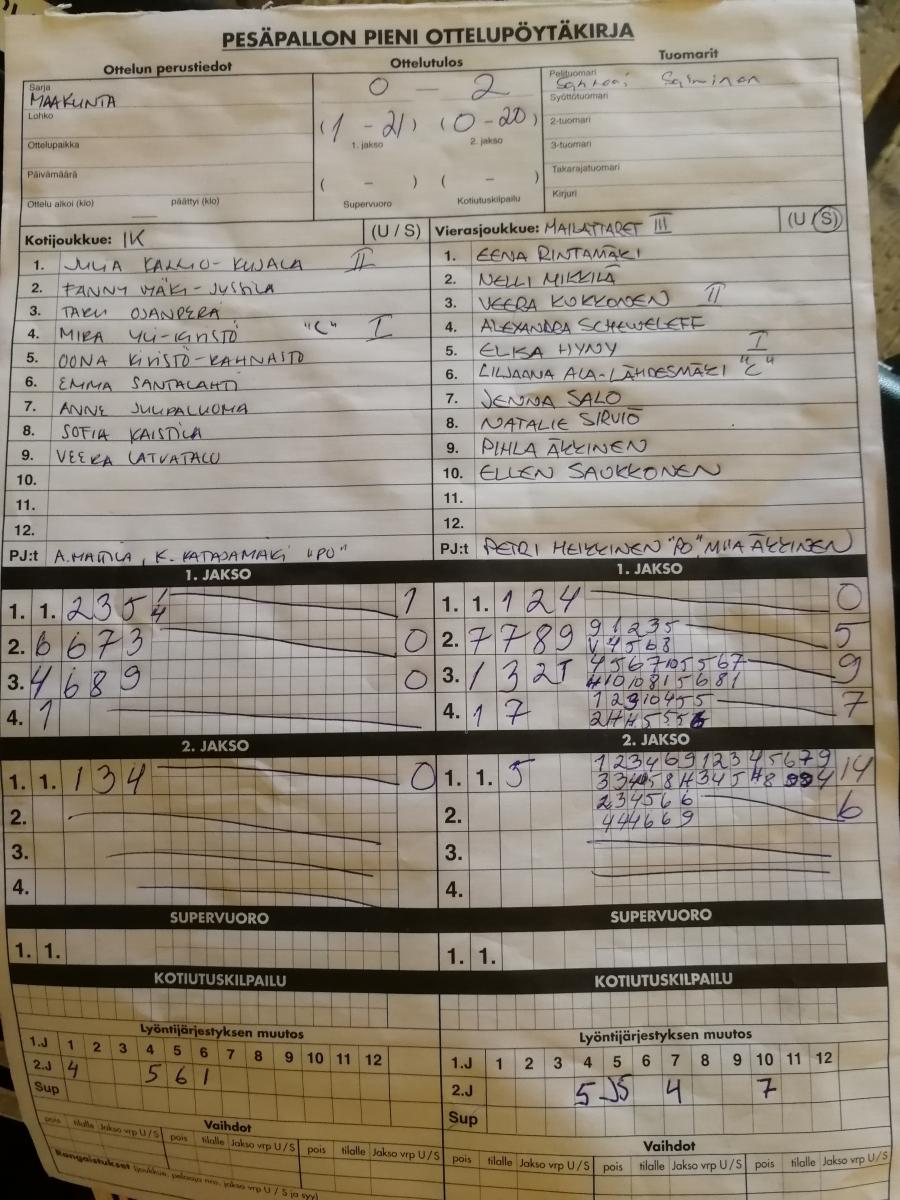 PESÄPALLON PIENI OTTELUPÖYTÄKIRJA
Ottelun perustiedot
Ottelutulos
Tuomarit
Sarja
MAAKUNTA
Lohko
Ottelupaikka
Päivämäärä
Ottelu alkoi (klo) päättyi (klo)
0 - 2
(1 - 21) (0 - 20)
1. jakso 2. jakso
( - ) ( - )
Supervuoro Kotiutuskilpailu
Pelituomari
Salminen
Syöttötuomari
2-tuomari
3-tuomari
Takarajatuomari
Kirjuri
Kotijoukkue: IK (U / S)
1. JULIA KALLIO-KUJALA II
2. FANNY MÄKI-JUSSILA
3. TARU OJANPERÄ
4. MIRA YLI-KIRISTÖ "C" I
5. OONA KIVISTÖ-RAHNASTO
6. EMMA SANTALAHTI
7. ANNE JUUPALUOMA
8. SOFIA KAISTILA
9. VEERA LATVATALO
10.
11.
12.
PJ:t A. MATTILA, K. KATAJAMÄKI "PO"
Vierasjoukkue: MAILATTARET III (U / S)
1. EENA RINTAMÄKI
2. NELLI MIKKILÄ
3. VEERA KUKKONEN II
4. ALEXANDRA SCHEWELEFF
5. ELISA HYNY I
6. LILJAANA ALA-LÄHDESMÄKI "C"
7. JENNA SALO
8. NATALIE SIRVIÖ
9. PIHLA ÄKKINEN
10. ELLEN SAUKKONEN
11.
12.
PJ:t PETRI HEIKKINEN "PO" MIIA ÄKKINEN
1. JAKSO
1. 1. 2 3 5 1
2. 6 6 7 3 0
3. 4 6 8 9 0
4. 1
1. JAKSO
1. 1. 1 2 4 0
2. 7 7 8 9 9 1 2 3 5 5
3. 1 3 2 9
4. 1 7 7
2. JAKSO
1. 1. 1 3 4 0
2.
3.
4.
2. JAKSO
1. 1. 5 1 2 3 4 6 9 1 2 3 4 5 6 7 9 14
2. 2 3 4 5 6 6 6
4 4 4 6 6 9
3.
4.
SUPERVUORO
1. 1.
SUPERVUORO
1. 1.
KOTIUTUSKILPAILU
KOTIUTUSKILPAILU
Lyöntijärjestyksen muutos
1.J 1 2 3 4 5 6 7 8 9 10 11 12
2.J 4 5 6 1
Sup
Lyöntijärjestyksen muutos
1.J 1 2 3 4 5 6 7 8 9 10 11 12
2.J 5 5 4 7
Sup
Vaihdot
pois tilalle Jakso vrp U / S pois tilalle Jakso vrp U / S pois tilalle Jakso vrp U / S
Rangaistukset (joukkue, pelaaja nro, jakso vrp U / S ja syy)
Vaihdot
pois tilalle Jakso vrp U / S pois tilalle Jakso vrp U / S pois tilalle Jakso vrp U / S